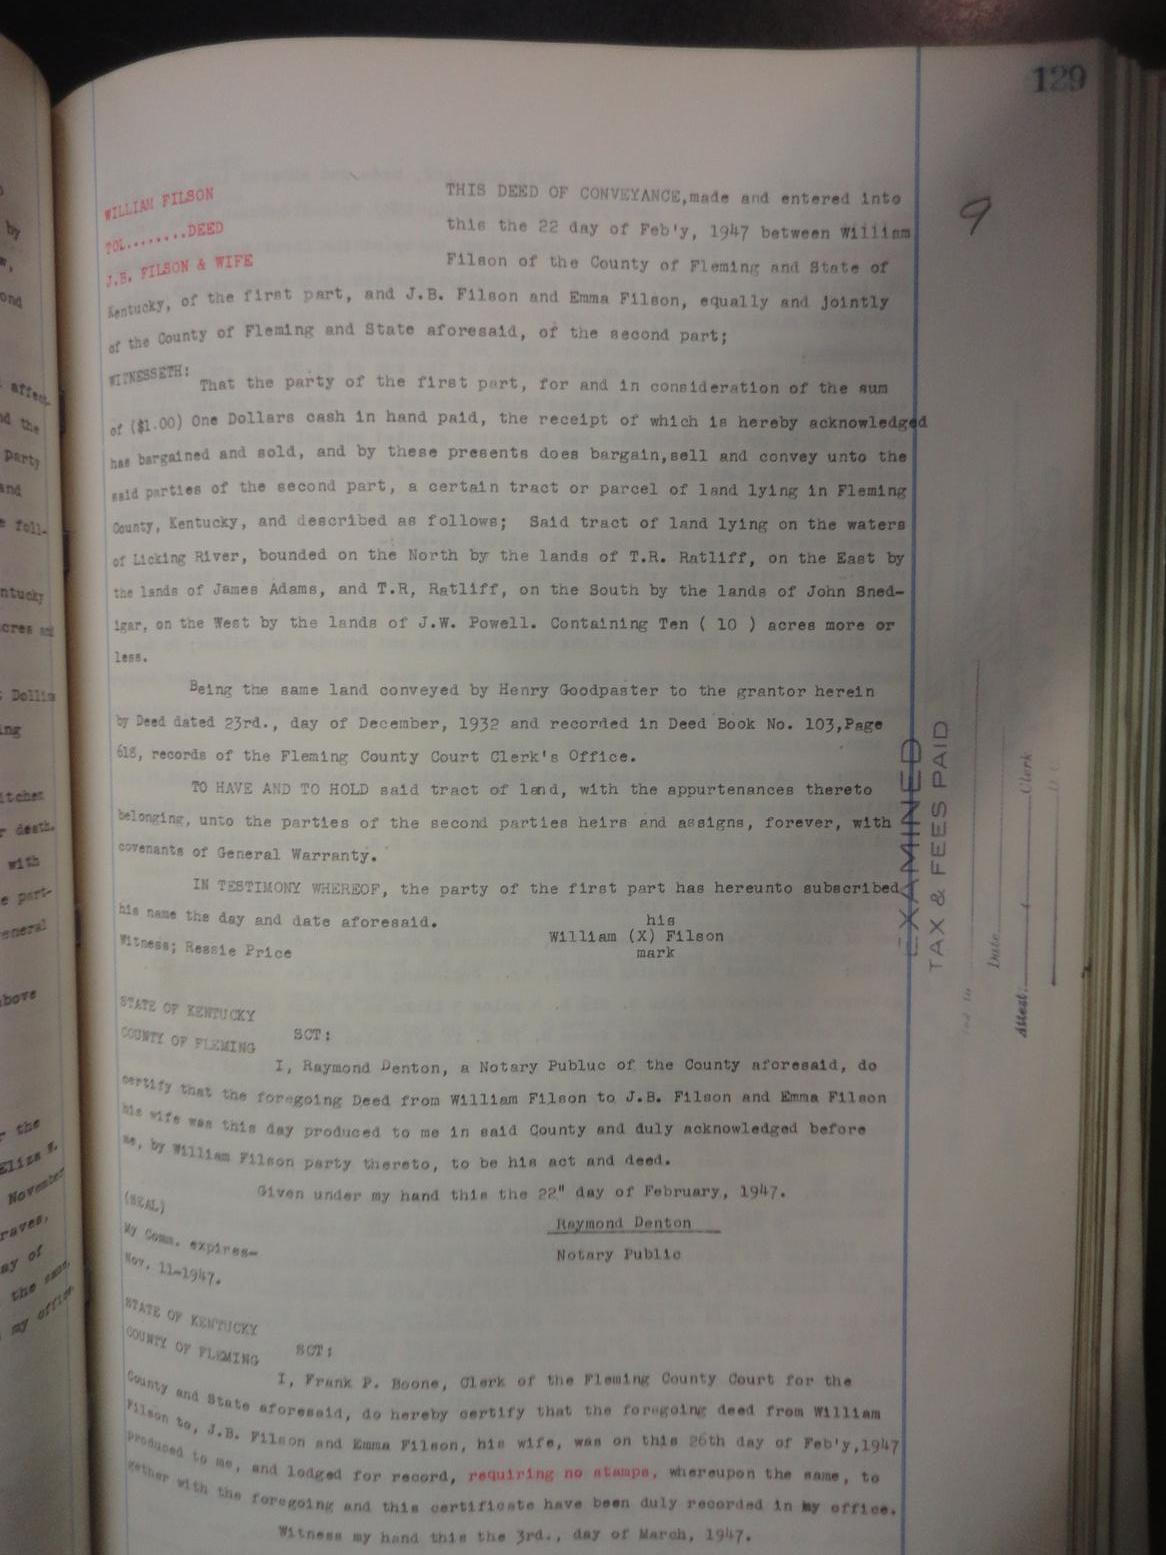 129
9
WILLIAM FILSON
TOL........DEED
J.B. FILSON & WIFE
THIS DEED OF CONVEYANCE,made and entered into
this the 22 day of Feb'y, 1947 between William
Filson of the County of Fleming and State of
Kentucky, of the first part, and J.B. Filson and Emma Filson, equally and jointly
of the County of Fleming and State aforesaid, of the second part;
WITNESSETH:
That the party of the first part, for and in consideration of the sum
of ($1.00) One Dollars cash in hand paid, the receipt of which is hereby acknowledged
has bargained and sold, and by these presents does bargain,sell and convey unto the
said parties of the second part, a certain tract or parcel of land lying in Fleming
County, Kentucky, and described as follows; Said tract of land lying on the waters
of Licking River, bounded on the North by the lands of T.R. Ratliff, on the East by
the lands of James Adams, and T.R, Ratliff, on the South by the lands of John Sned-
igar, on the West by the lands of J.W. Powell. Containing Ten ( 10 ) acres more or
less.
Being the same land conveyed by Henry Goodpaster to the grantor herein
by Deed dated 23rd., day of December, 1932 and recorded in Deed Book No. 103,Page
618, records of the Fleming County Court Clerk's Office.
TO HAVE AND TO HOLD said tract of land, with the appurtenances thereto
belonging, unto the parties of the second parties heirs and assigns, forever, with
covenants of General Warranty.
IN TESTIMONY WHEREOF, the party of the first part has hereunto subscribed
his name the day and date aforesaid.
his
William (X) Filson
mark
Witness; Ressie Price
STATE OF KENTUCKY
COUNTY OF FLEMING
SCT:
I, Raymond Denton, a Notary Publuc of the County aforesaid, do
certify that the foregoing Deed from William Filson to J.B. Filson and Emma Filson
his wife was this day produced to me in said County and duly acknowledged before
me, by William Filson party thereto, to be his act and deed.
Given under my hand this the 22" day of February, 1947.
(SEAL)
Raymond Denton
My Comm. expires-
Notary Public
Nov. 11-1947.
STATE OF KENTUCKY
COUNTY OF FLEMING
SCT:
I, Frank P. Boone, Clerk of the Fleming County Court for the
County and State aforesaid, do hereby certify that the foregoing deed from William
Filson to, J.B. Filson and Emma Filson, his wife, was on this 26th day of Feb'y,1947
produced to me, and lodged for record, requiring no stamps, whereupon the same, to
gether with the foregoing and this certificate have been duly recorded in my office.
Witness my hand this the 3rd., day of March, 1947.
EXAMINED
TAX & FEES PAID
Date
Attest: Clerk
D. C.
by
affect-
nd the
party
and
foll-
ntucky
acres and
ing
death.
with
e part-
eneral
above
the
Eliza
November
raves,
ay of
the same,
my office